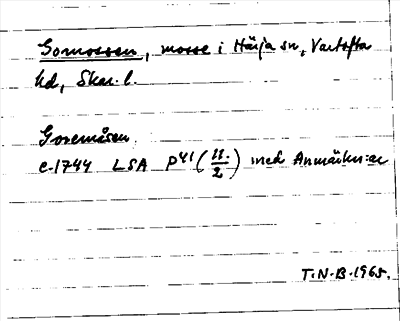 Gomossen, mosse i Härja sn, Vartofta
hd, Skar. l.
Govemåsen.
c. 1744 LSA P41 (11:/2) med Anmärkn:ar
T.N.B. 1965.